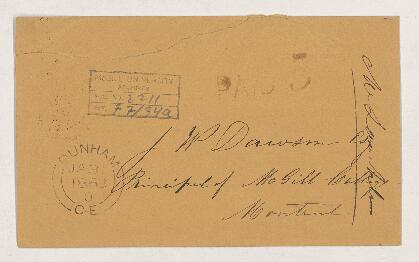 McGILL UNIVERSITY
ARCHIVES
ACC. NO. 2211
REF. 77/54a
PAID 3
DUNHAM
JA 31
1863
C-E
J W Dawson Esq
Principal of McGill College
Montreal